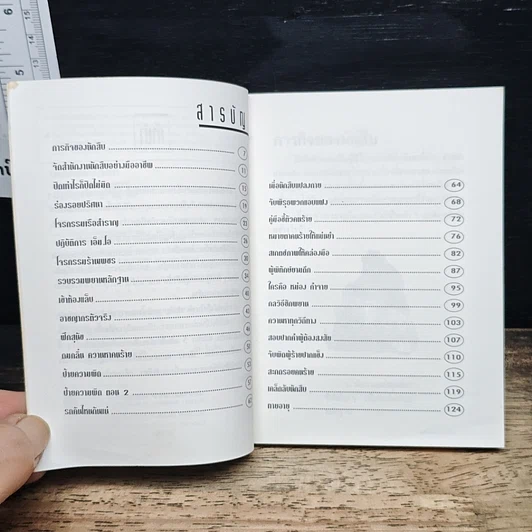 สารบัญ
ภารกิจของนักสืบ 7
จัดสำนักงานนักสืบอย่างมืออาชีพ 11
ปิดเท่าไรก็ปิดไม่มิด
ร่องรอยปริศนา
โจรกรรมเรือสำราญ
ปฏิบัติการ เอ็มโอ
โจรกรรมร้านเพชร
รวบรวมพยานหลักฐาน
เข้าห้องแล็บ
อาชญากรตัวจริง
ฝึกสุนัข
ดมกลิ่น ความหาคนร้าย
ป้ายความผิด
ป้ายความผิด ตอน 2
รถคันไหนกันแน่
เมื่อนักสืบปลอมกาย 64
จับพิรุธพวกแอบแฝง 68
คู่มือชี้ตัวคนร้าย 72
หมายตาคนร้ายให้แม่นยำ 76
สเกตช์ภาพให้คล่องมือ 82
ผู้พิทักษ์ยามดึก 87
ใครคือ หม่อง คำราย 95
กลวิธีซักพยาน 99
ความหาทุกวิถีทาง 103
สอบปากคำผู้ต้องสงสัย 107
จับผิดผู้ร้ายปากแข็ง 110
สะกดรอยคนร้าย 115
เคล็ดลับนักสืบ 119
ทายอายุ 124